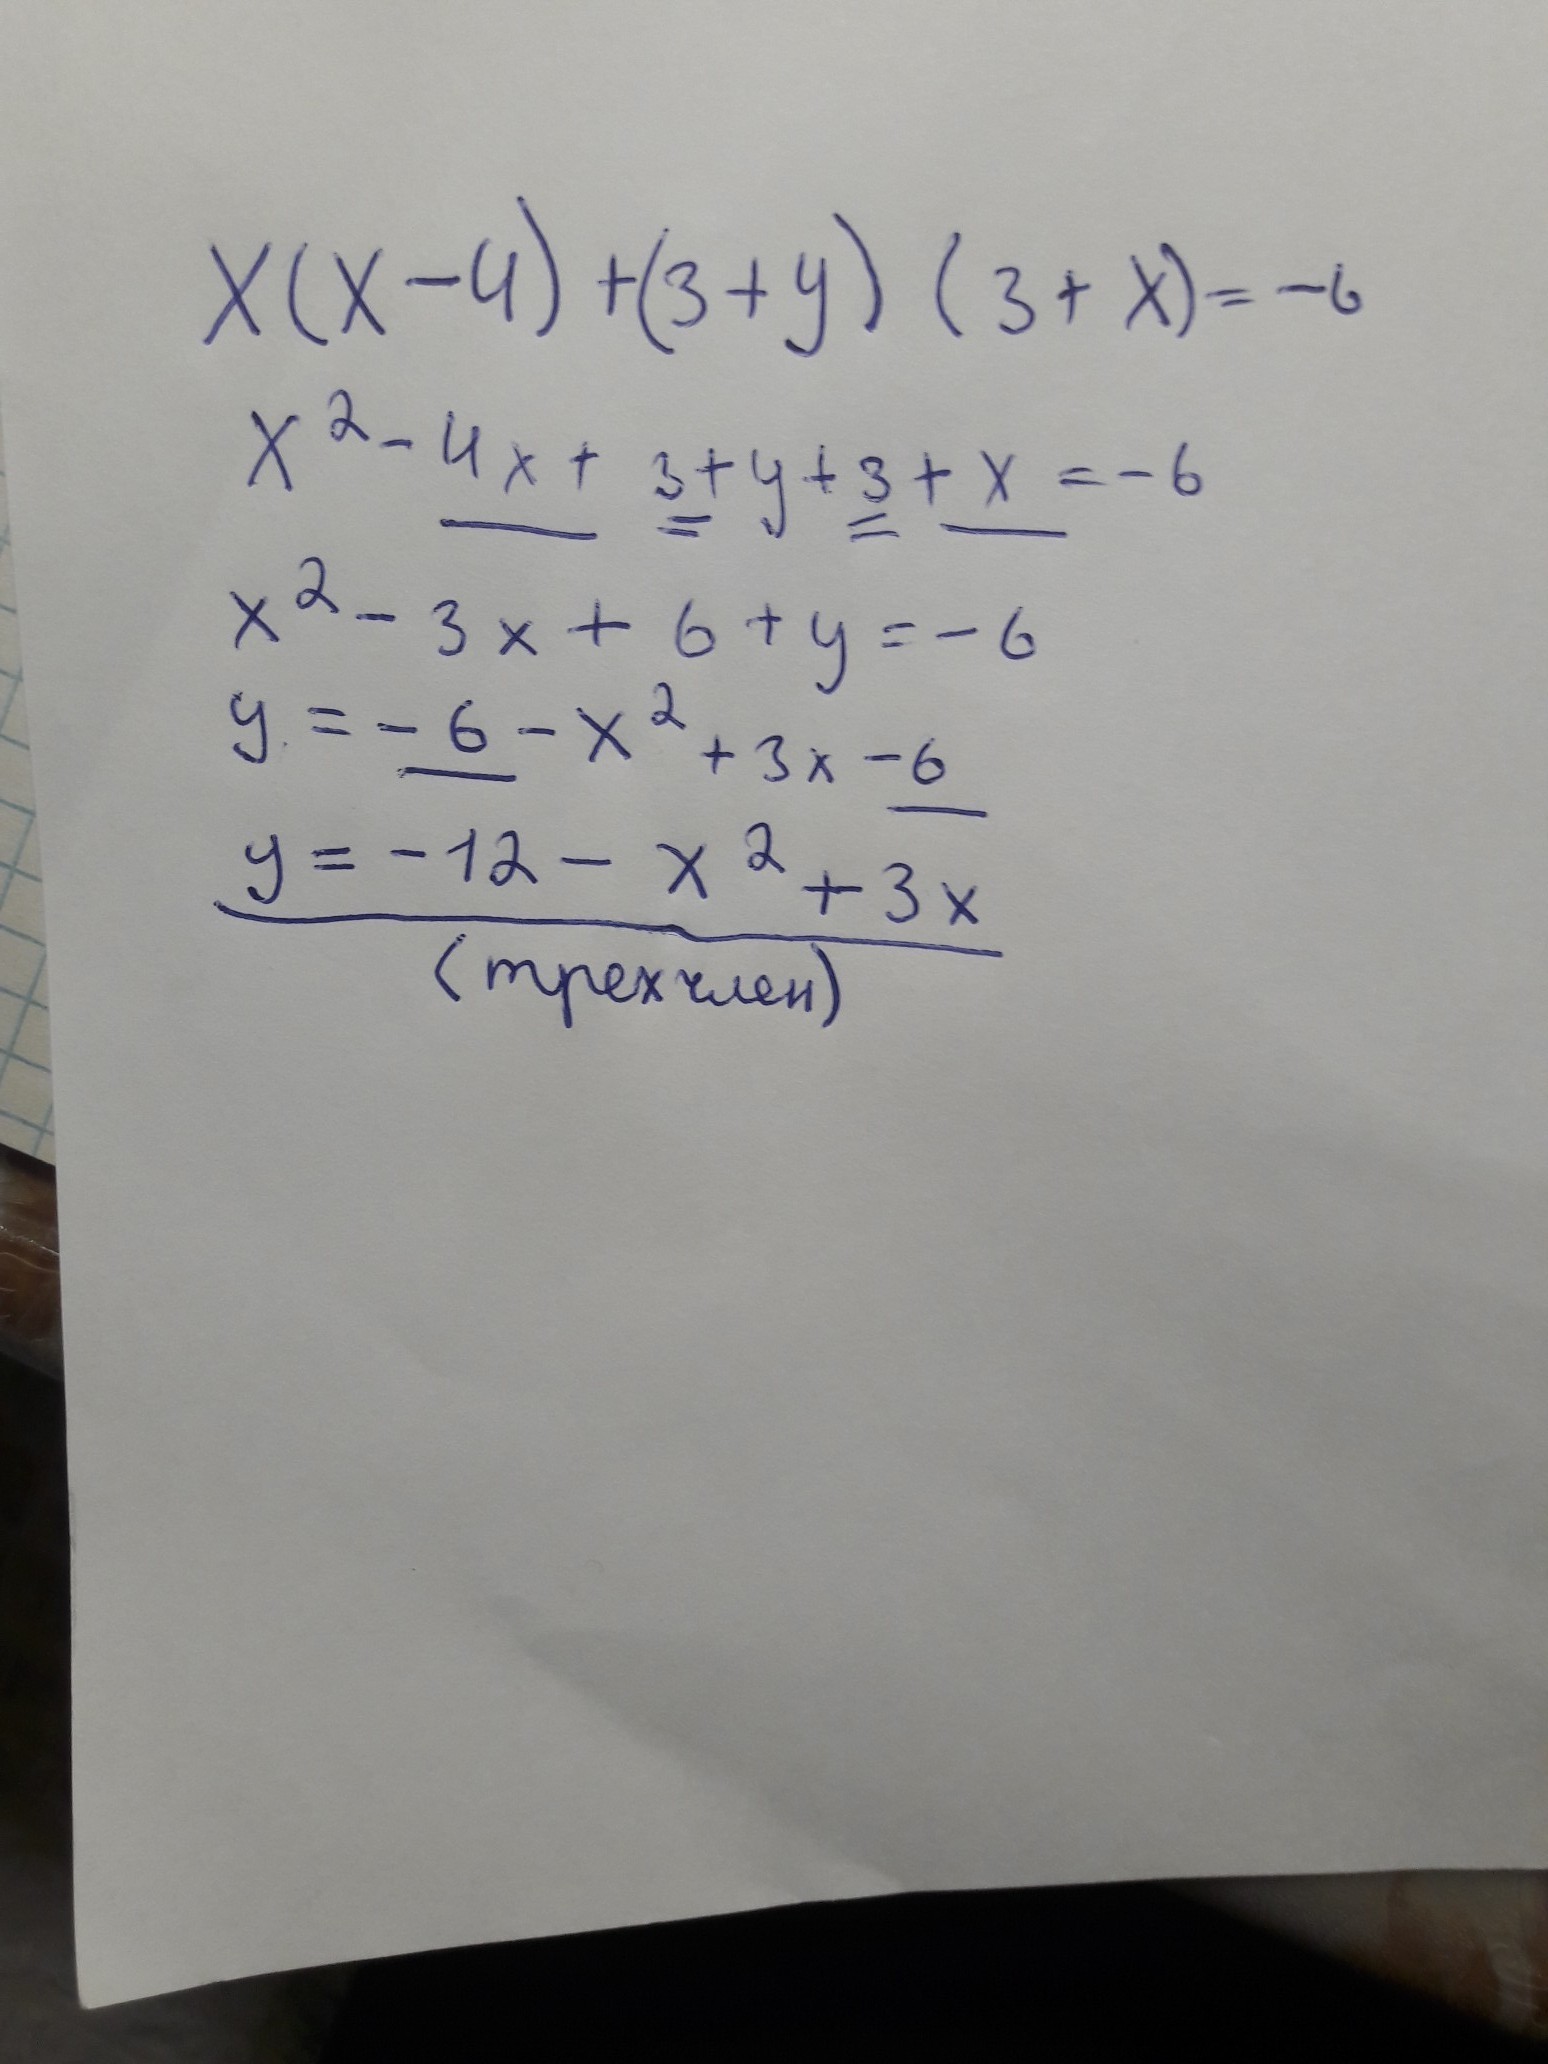 x(x-4)+(3+y)(3+x)=-6
x²-4x+3+y+3+x=-6
x²-3x+6+y=-6
y=-6-x²+3x-6
y=-12-x²+3x
(трехчлен)